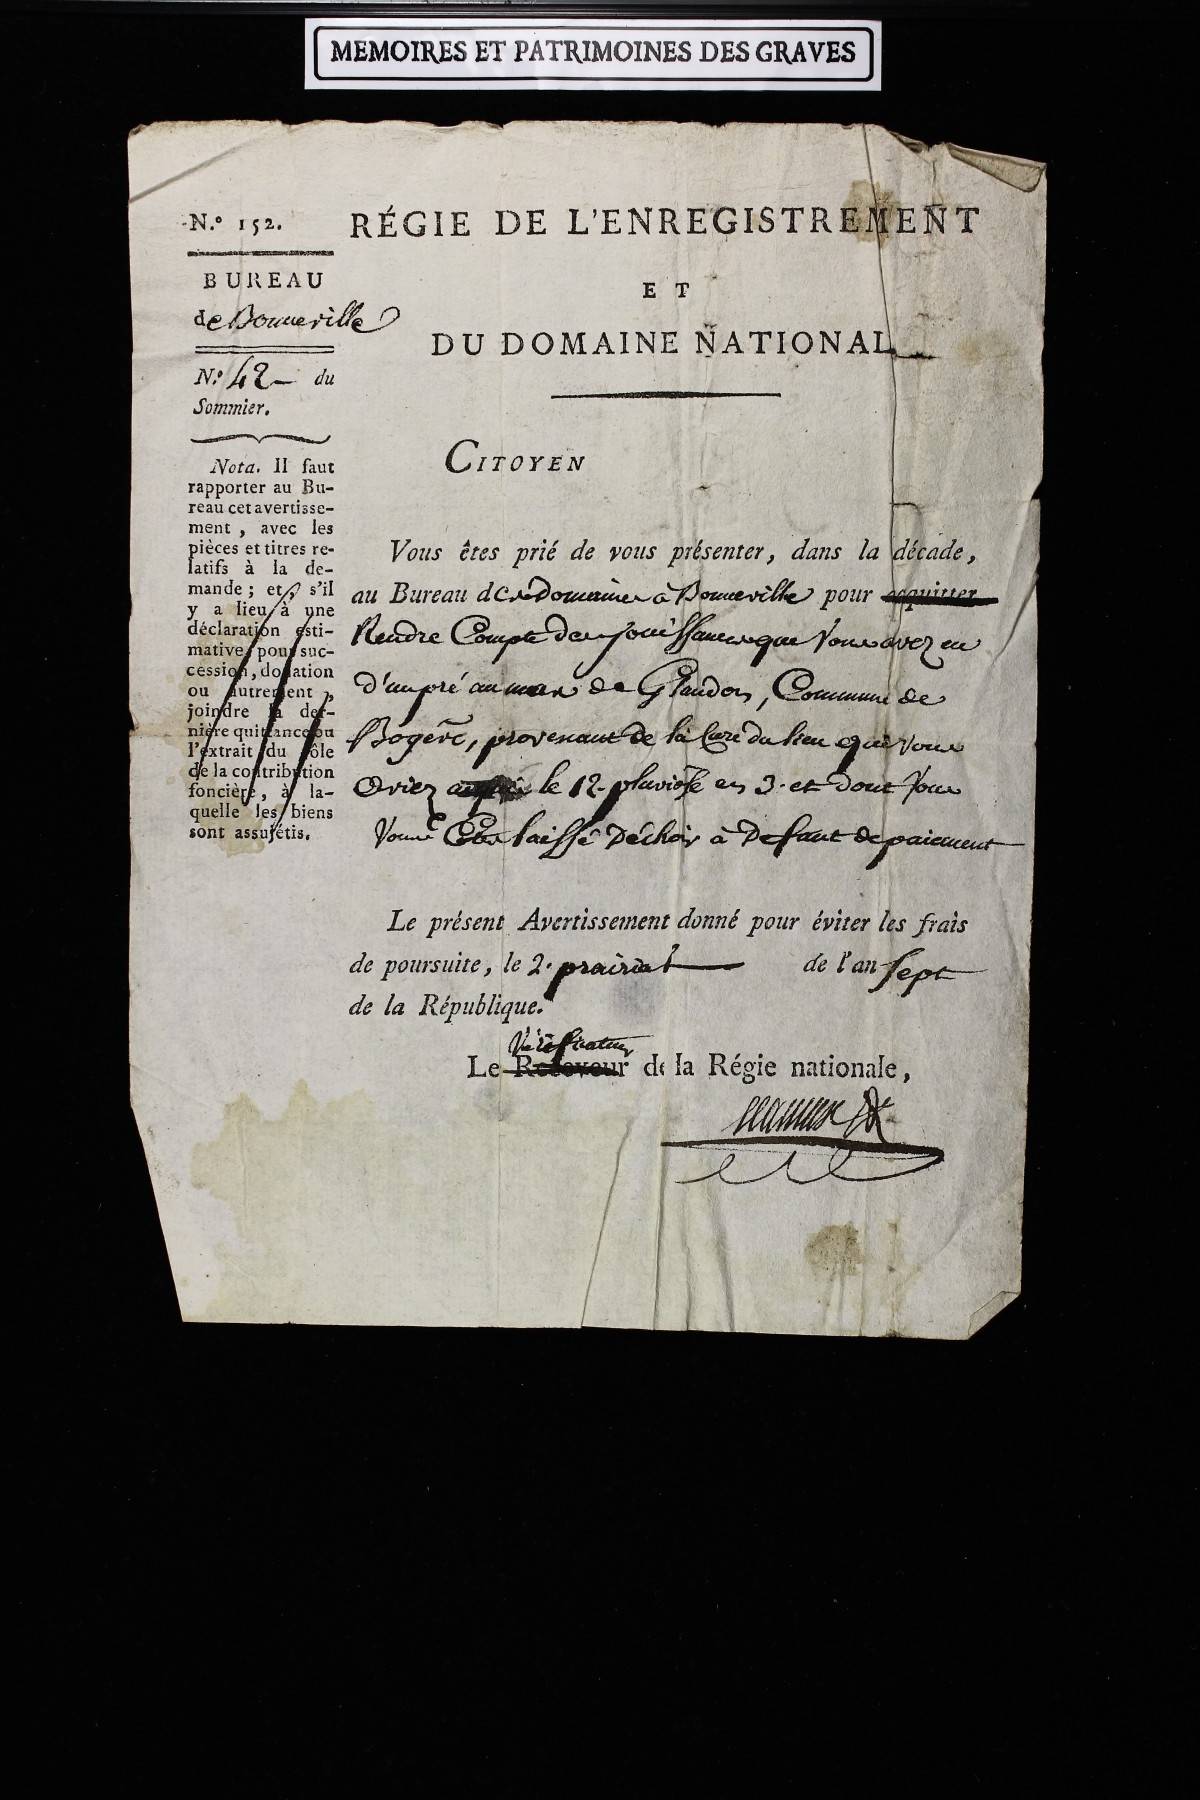 MEMOIRES ET PATRIMOINES DES GRAVES
N.º 152.
BUREAU
de Bonneville
N.º 42 — du
Sommier.
Nota. Il faut
rapporter au Bu-
reau cet avertisse-
ment, avec les
pièces et titres re-
latifs à la de-
mande; et, s'il
y a lieu à une
déclaration esti-
mative pour suc-
cession, donation
ou autrement,
joindre la der-
nière quittance ou
l'extrait du rôle
de la contribution
foncière, à la-
quelle les biens
sont assujétis.
RÉGIE DE L'ENREGISTREMENT
ET
DU DOMAINE NATIONAL
CITOYEN
Vous êtes prié de vous présenter, dans la décade,
au Bureau des domaines à Bonneville pour acquitter
Rendre Compte des jouissances que Vous avez eu
d'un pré au mas de Glandon, Commune de
Bogève, provenant de la Cure du lieu que vous
aviez le 12. pluviose en 3. et dont Vous
Vous Etes laissé Déchoir à Defaut de paiement
Le présent Avertissement donné pour éviter les frais
de poursuite, le 2. prairial de l'an sept
de la République.
Vérificateur
Le Receveur de la Régie nationale,